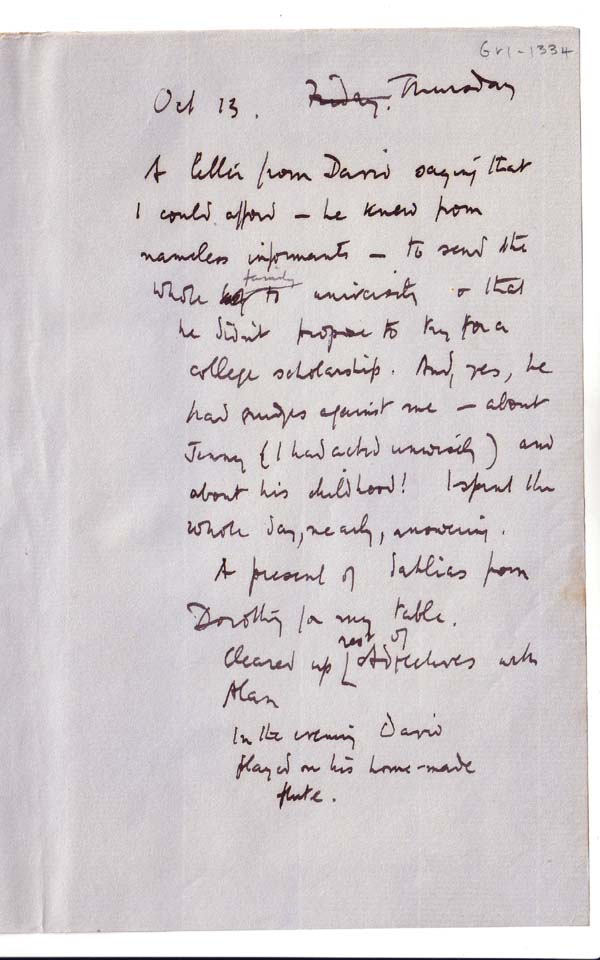 Gr1-1334
Oct 13. Friday. Thursday
A letter from David saying that
I could afford – he knew from
nameless informants – to send the
whole family to university & that
he didn't propose to try for a
college scholarship. And, yes, he
had grudges against me – about
Jenny (I had acted unwisely) and
about his childhood! I spent the
whole day, nearly, answering.
A present of dahlias from
Dorothy for my table.
Cleared up rest of Adjectives with
Alan
In the evening David
played on his home-made
flute.